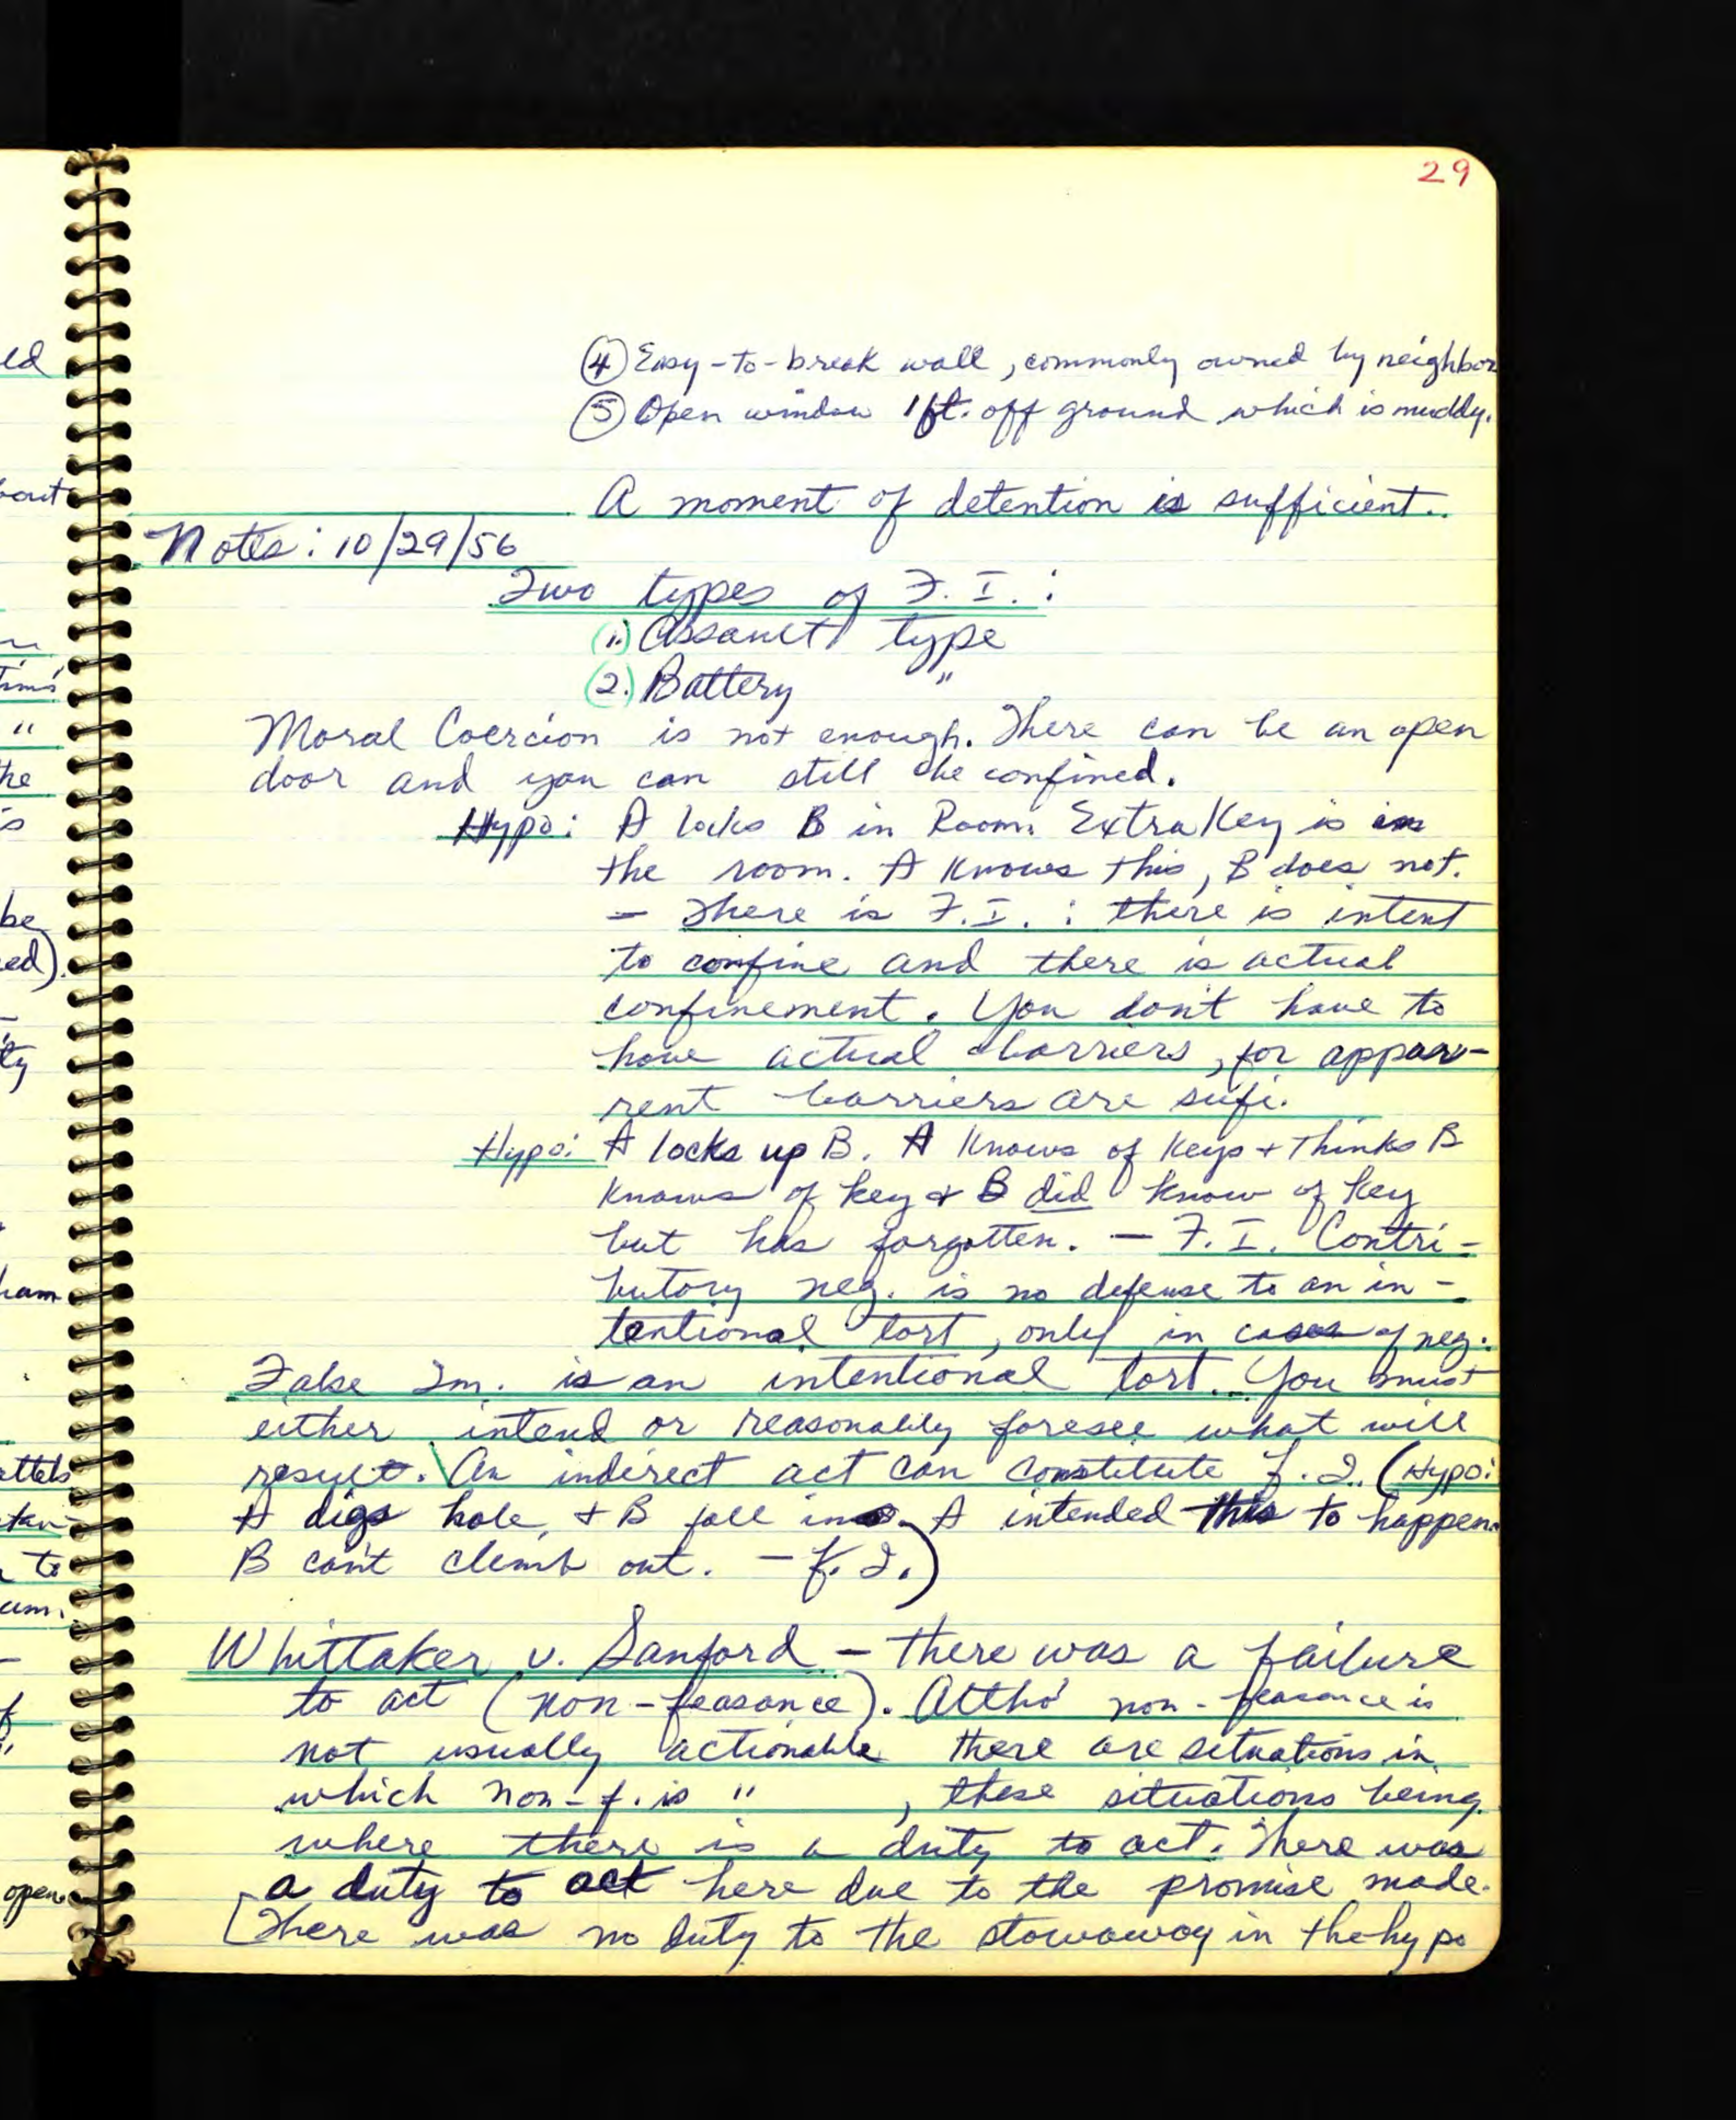 29
④ Easy-to-break wall, commonly owned by neighbor
⑤ Open window 1 ft. off ground which is muddy.
A moment of detention is sufficient.
Notes: 10/29/56
Two types of F.I.:
(1.) Assault type
(2.) Battery "
Moral Coercion is not enough. There can be an open
door and you can still be confined.
Hypo: A locks B in Room. Extra Key is in
the room. A knows this, B does not.
— There is F.I.: there is intent
to confine and there is actual
confinement. You don't have to
have actual barriers, for appar-
rent barriers are sufi.
Hypo: A locks up B. A knows of keys + thinks B
knows of key & B did know of key
but has forgotten. — F.I. Contri-
butory neg. is no defense to an in-
tentional tort, only in cases of neg.
False Im. is an intentional tort. You must
either intend or reasonably foresee what will
result. An indirect act can constitute f.I. (Hypo:
A digs hole, + B fall in. A intended this to happen.
B can't climb out. — f.I.)
Whittaker v. Sanford — there was a failure
to act (non-feasance). Altho' non-feasance is
not usually actionable there are situations in
which non-f. is " , these situations being
where there is a duty to act. There was
a duty to act here due to the promise made.
[There was no duty to the stowaway in the hypo
ed
out
"
the
is
be
ed).
ty
ham
attels
to
of
open